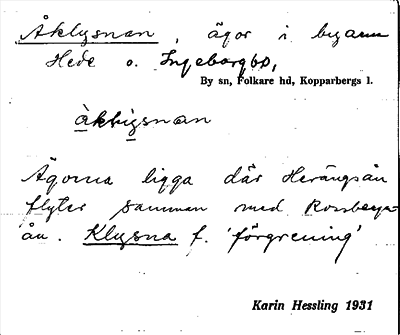 Åklysnan, ägor i byarna
Hede o. Ingeborgbo,
By sn, Folkare hd, Kopparbergs l.
åklysnan
Ägorna ligga där Herängsån
flyter samman med Rossberga-
ån. Klysna f. 'förgrening'
Karin Hessling 1931